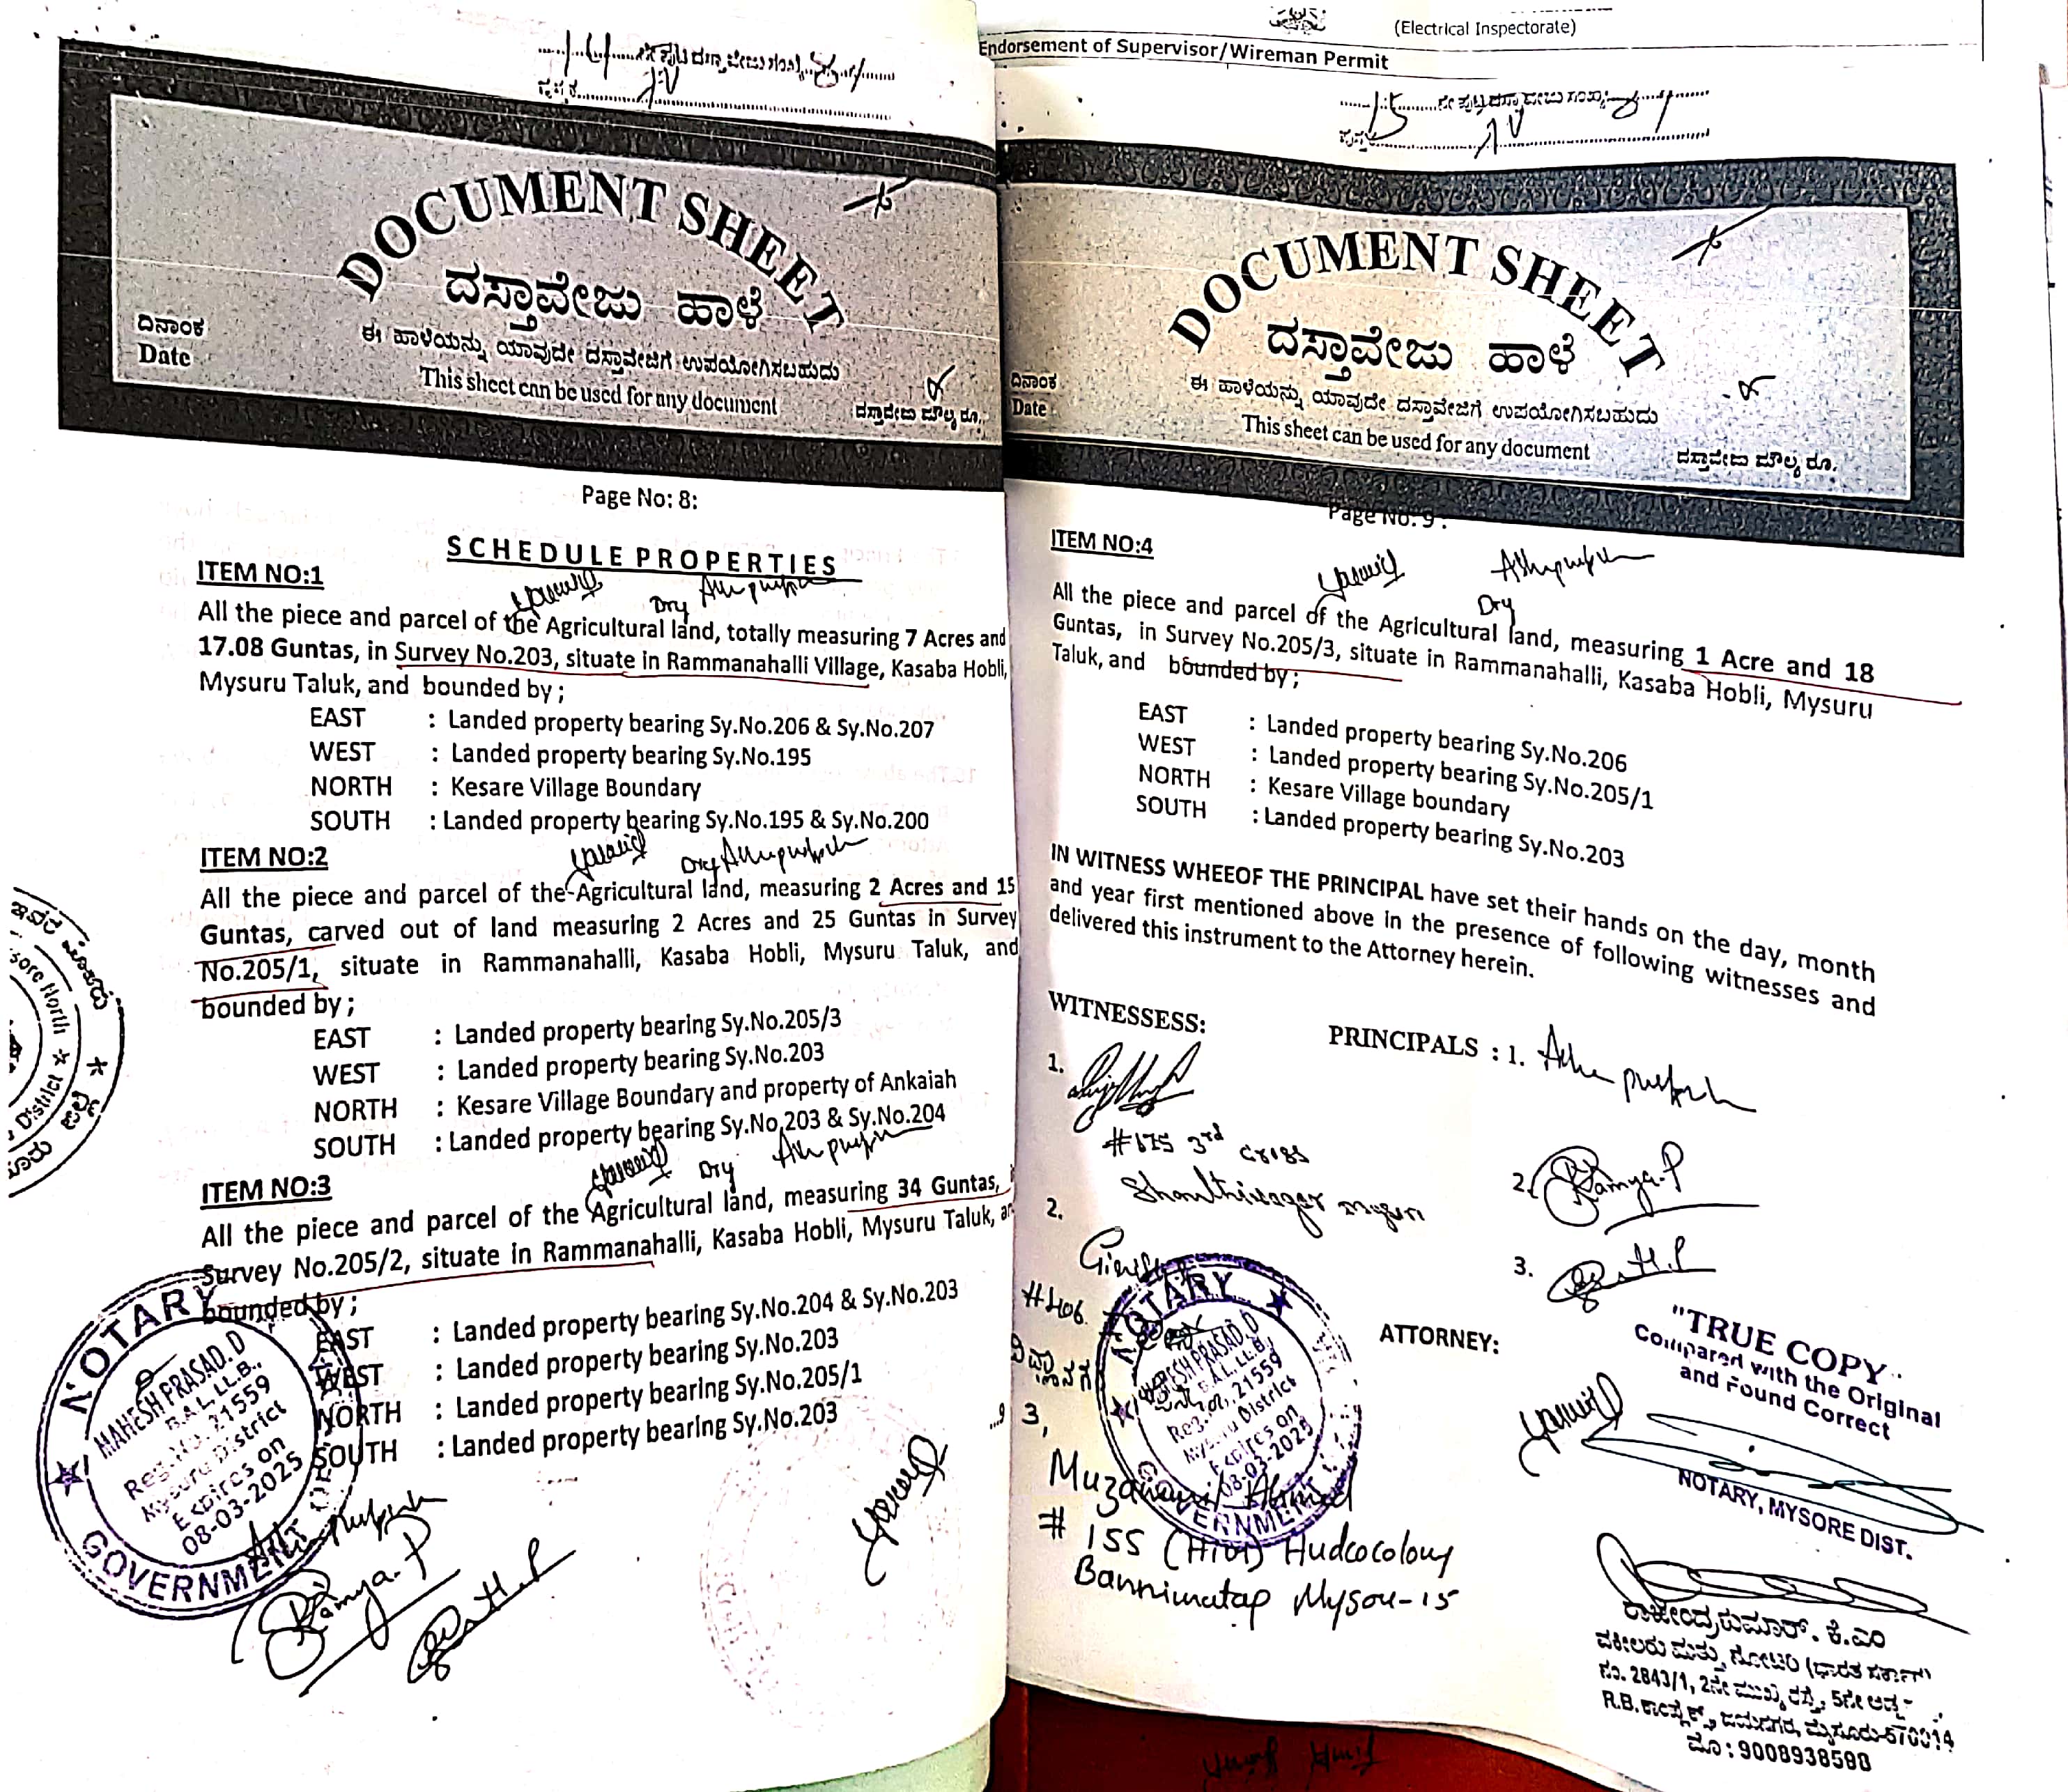 ನೇ ಪುಟ ದಸ್ತಾವೇಜು ಸಂಖ್ಯೆ
ಪುಸ್ತಕ
DOCUMENT SHEET
ದಸ್ತಾವೇಜು ಹಾಳೆ
ದಿನಾಂಕ
Date
ಈ ಹಾಳೆಯನ್ನು ಯಾವುದೇ ದಸ್ತಾವೇಜಿಗೆ ಉಪಯೋಗಿಸಬಹುದು
This sheet can be used for any document
ದಸ್ತಾವೇಜು ಮೌಲ್ಯ ರೂ.
Page No: 8:
SCHEDULE PROPERTIES
ITEM NO:1
Dry
All the piece and parcel of the Agricultural land, totally measuring 7 Acres and
17.08 Guntas, in Survey No.203, situate in Rammanahalli Village, Kasaba Hobli,
Mysuru Taluk, and bounded by ;
EAST : Landed property bearing Sy.No.206 & Sy.No.207
WEST : Landed property bearing Sy.No.195
NORTH : Kesare Village Boundary
SOUTH : Landed property bearing Sy.No.195 & Sy.No.200
ITEM NO:2
Dry
All the piece and parcel of the Agricultural land, measuring 2 Acres and 15
Guntas, carved out of land measuring 2 Acres and 25 Guntas in Survey
No.205/1, situate in Rammanahalli, Kasaba Hobli, Mysuru Taluk, and
bounded by ;
EAST : Landed property bearing Sy.No.205/3
WEST : Landed property bearing Sy.No.203
NORTH : Kesare Village Boundary and property of Ankaiah
SOUTH : Landed property bearing Sy.No.203 & Sy.No.204
ITEM NO:3
Dry
All the piece and parcel of the Agricultural land, measuring 34 Guntas,
Survey No.205/2, situate in Rammanahalli, Kasaba Hobli, Mysuru Taluk,
bounded by ;
EAST : Landed property bearing Sy.No.204 & Sy.No.203
WEST : Landed property bearing Sy.No.203
NORTH : Landed property bearing Sy.No.205/1
SOUTH : Landed property bearing Sy.No.203
...9
NOTARY
MAHESH PRASAD. D
B.A.L, LL.B.,
Reg.No. 21559
Mysuru District
Expires on
08-03-2025
GOVERNMENT OF
Ramya.P
(Electrical Inspectorate)
Endorsement of Supervisor/Wireman Permit
15 ನೇ ಪುಟ ದಸ್ತಾವೇಜು ಸಂಖ್ಯೆ
ಪುಸ್ತಕ
DOCUMENT SHEET
ದಸ್ತಾವೇಜು ಹಾಳೆ
ದಿನಾಂಕ
Date
ಈ ಹಾಳೆಯನ್ನು ಯಾವುದೇ ದಸ್ತಾವೇಜಿಗೆ ಉಪಯೋಗಿಸಬಹುದು
This sheet can be used for any document
ದಸ್ತಾವೇಜು ಮೌಲ್ಯ ರೂ.
Page No: 9 :
ITEM NO:4
Dry
All the piece and parcel of the Agricultural land, measuring 1 Acre and 18
Guntas, in Survey No.205/3, situate in Rammanahalli, Kasaba Hobli, Mysuru
Taluk, and bounded by ;
EAST : Landed property bearing Sy.No.206
WEST : Landed property bearing Sy.No.205/1
NORTH : Kesare Village boundary
SOUTH : Landed property bearing Sy.No.203
IN WITNESS WHEEOF THE PRINCIPAL have set their hands on the day, month
and year first mentioned above in the presence of following witnesses and
delivered this instrument to the Attorney herein.
WITNESSESS:
PRINCIPALS : 1.
1.
#675 3rd cross
Shanthinagar mysuru
2. Ramya.P
2.
#406
3.
ATTORNEY:
NOTARY
MAHESH PRASAD. D
B.A.L, LL.B.,
Reg.No. 21559
Mysuru District
Expires on
08-03-2025
GOVERNMENT
3,
Muzammil Ahmed
# 155 (HIG) Hudcocolony
Bannimatap Mysore-15
"TRUE COPY"
Compared with the Original
and Found Correct
NOTARY, MYSORE DIST.
ರಾಜೇಂದ್ರಕುಮಾರ್. ಕೆ.ಎಂ
ವಕೀಲರು ಮತ್ತು ನೋಟರಿ (ಭಾರತ ಸರ್ಕಾರ)
ನಂ. 2843/1, 2ನೇ ಮುಖ್ಯ ರಸ್ತೆ, 5ನೇ ಅಡ್ಡ
R.B. ಕಾಂಪ್ಲೆಕ್ಸ್, ಜಯನಗರ, ಮೈಸೂರು-570014
ಮೊ : 9008938590